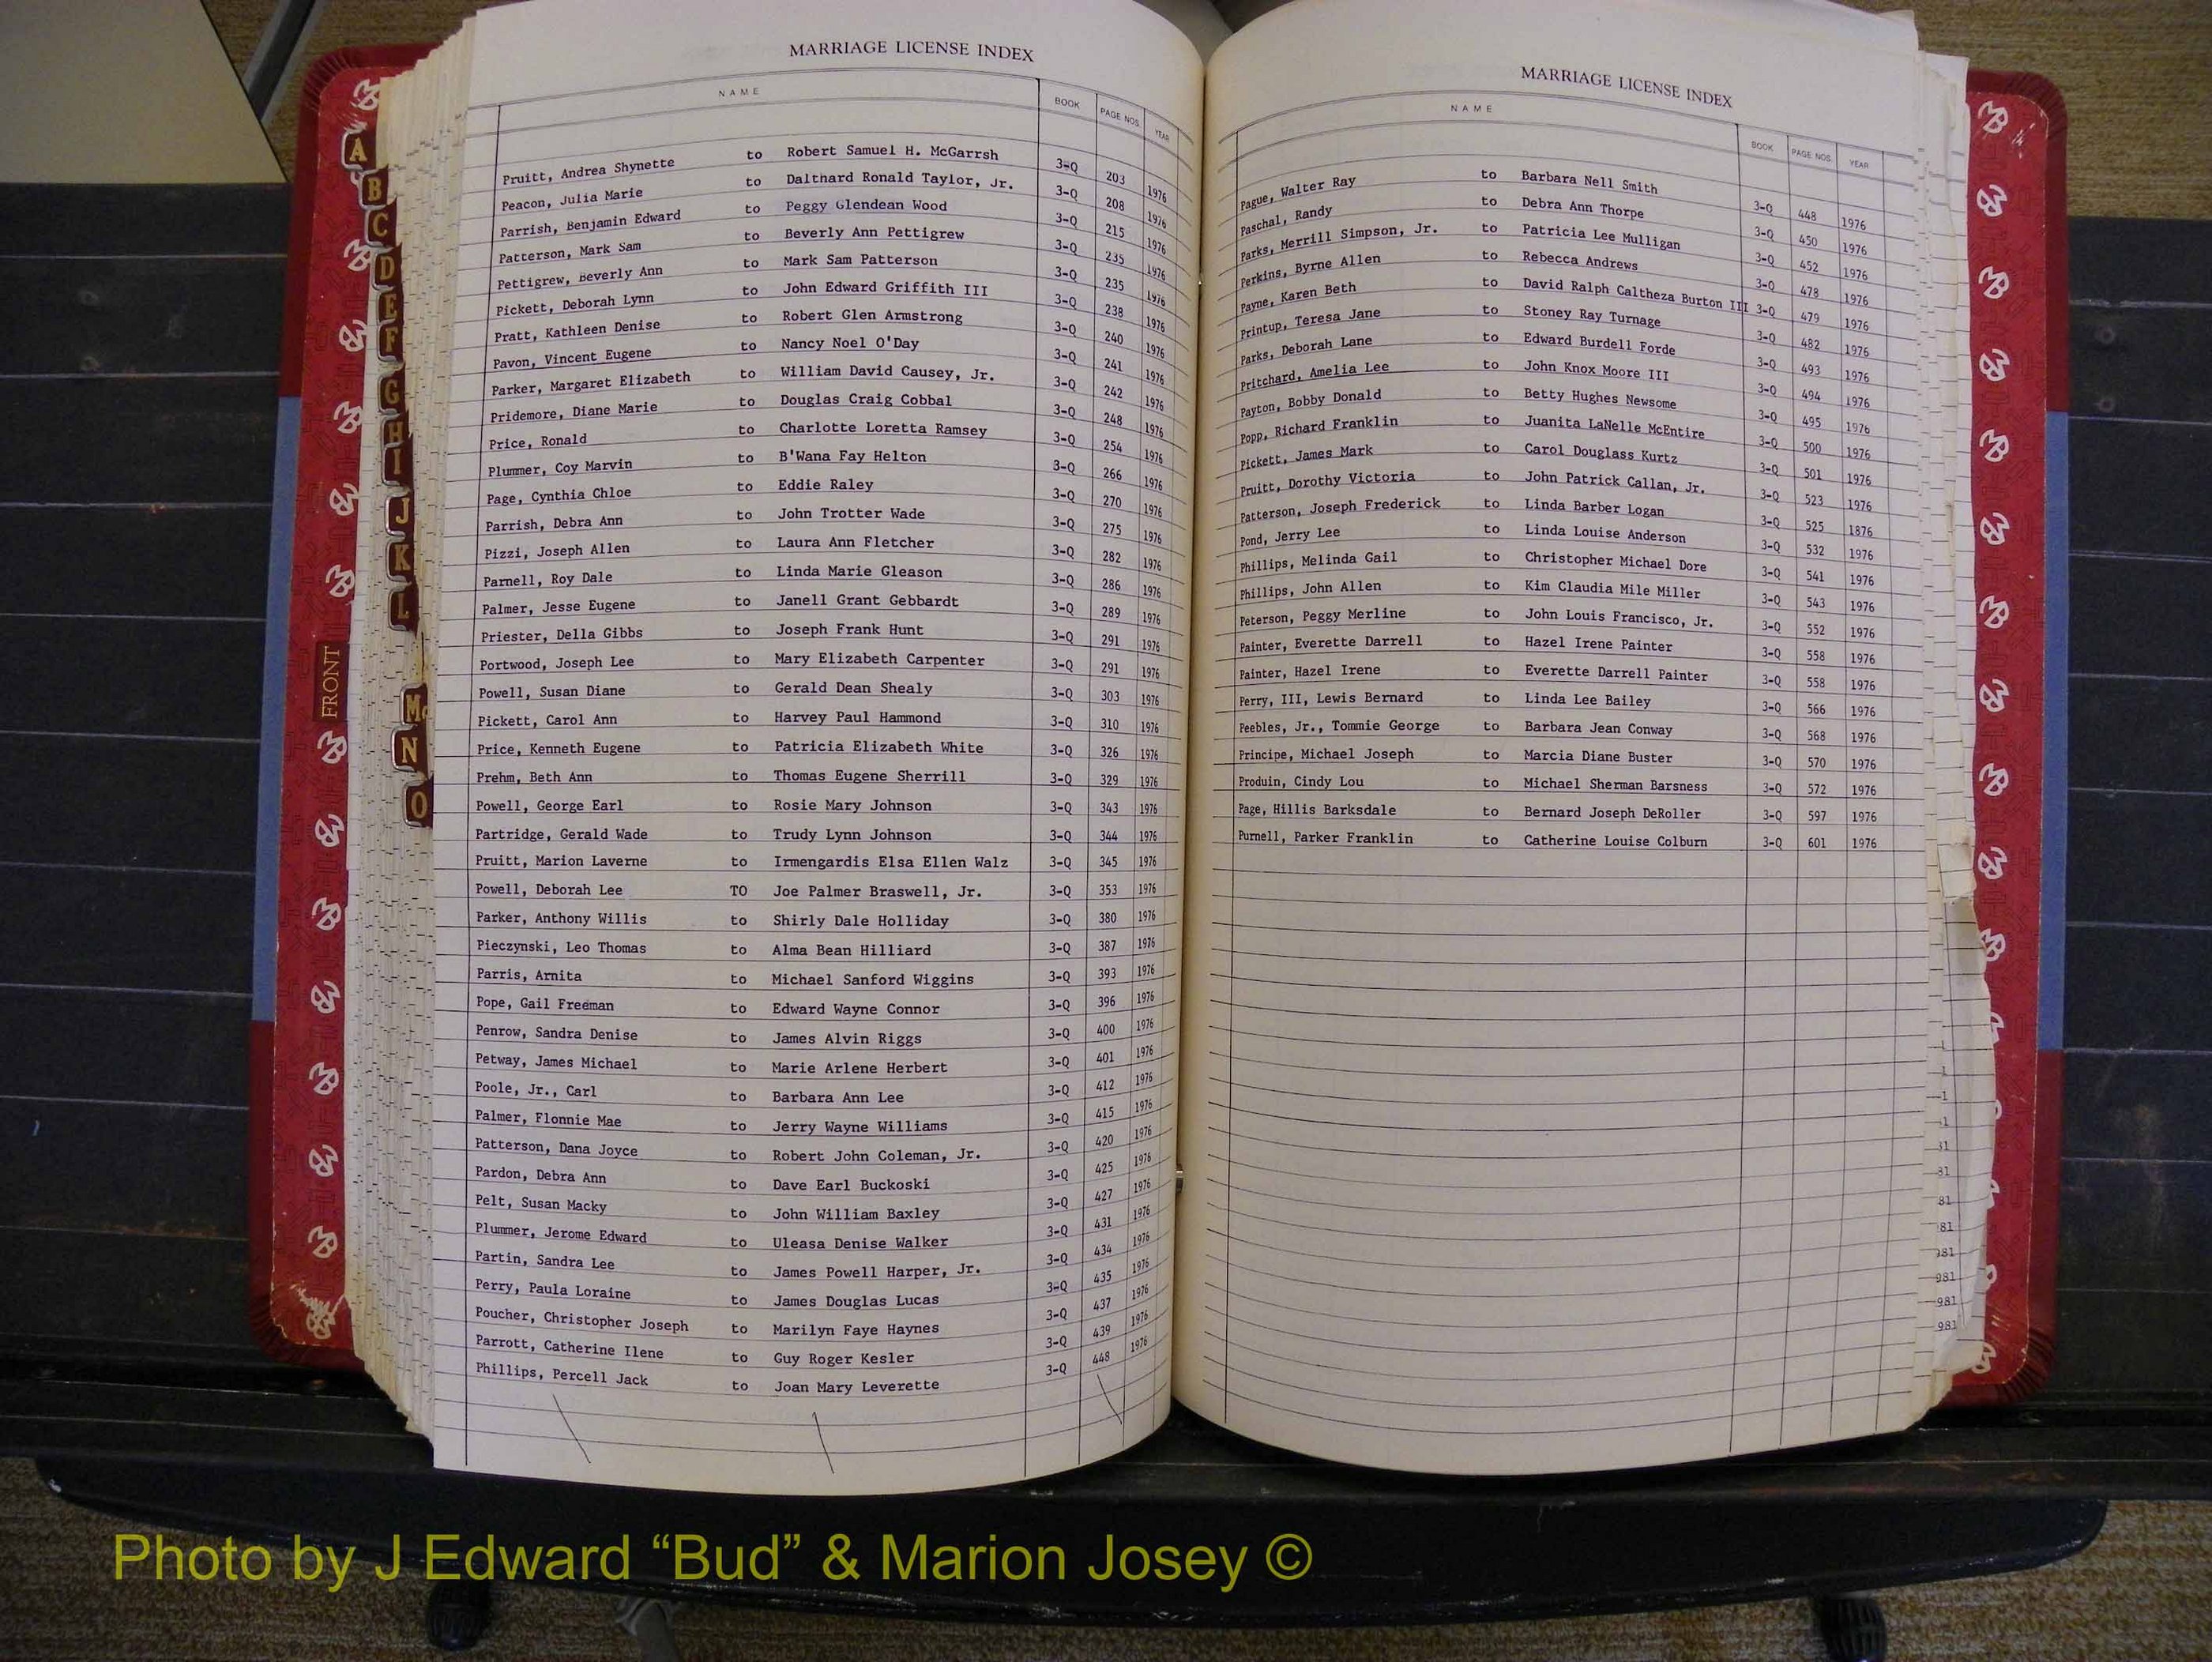 MARRIAGE LICENSE INDEX
NAME BOOK PAGE NOS. YEAR
Pruitt, Andrea Shynette to Robert Samuel H. McGarrsh 3-Q 203 1976
Peacon, Julia Marie to Dalthard Ronald Taylor, Jr. 3-Q 208 1976
Parrish, Benjamin Edward to Peggy Glendean Wood 3-Q 215 1976
Patterson, Mark Sam to Beverly Ann Pettigrew 3-Q 235 1976
Pettigrew, Beverly Ann to Mark Sam Patterson 3-Q 235 1976
Pickett, Deborah Lynn to John Edward Griffith III 3-Q 238 1976
Pratt, Kathleen Denise to Robert Glen Armstrong 3-Q 240 1976
Pavon, Vincent Eugene to Nancy Noel O'Day 3-Q 241 1976
Parker, Margaret Elizabeth to William David Causey, Jr. 3-Q 242 1976
Pridemore, Diane Marie to Douglas Craig Cobbal 3-Q 248 1976
Price, Ronald to Charlotte Loretta Ramsey 3-Q 254 1976
Plummer, Coy Marvin to B'Wana Fay Helton 3-Q 266 1976
Page, Cynthia Chloe to Eddie Raley 3-Q 270 1976
Parrish, Debra Ann to John Trotter Wade 3-Q 275 1976
Pizzi, Joseph Allen to Laura Ann Fletcher 3-Q 282 1976
Parnell, Roy Dale to Linda Marie Gleason 3-Q 286 1976
Palmer, Jesse Eugene to Janell Grant Gebbardt 3-Q 289 1976
Priester, Della Gibbs to Joseph Frank Hunt 3-Q 291 1976
Portwood, Joseph Lee to Mary Elizabeth Carpenter 3-Q 291 1976
Powell, Susan Diane to Gerald Dean Shealy 3-Q 303 1976
Pickett, Carol Ann to Harvey Paul Hammond 3-Q 310 1976
Price, Kenneth Eugene to Patricia Elizabeth White 3-Q 326 1976
Prehm, Beth Ann to Thomas Eugene Sherrill 3-Q 329 1976
Powell, George Earl to Rosie Mary Johnson 3-Q 343 1976
Partridge, Gerald Wade to Trudy Lynn Johnson 3-Q 344 1976
Pruitt, Marion Laverne to Irmengardis Elsa Ellen Walz 3-Q 345 1976
Powell, Deborah Lee TO Joe Palmer Braswell, Jr. 3-Q 353 1976
Parker, Anthony Willis to Shirly Dale Holliday 3-Q 380 1976
Pieczynski, Leo Thomas to Alma Bean Hilliard 3-Q 387 1976
Parris, Arnita to Michael Sanford Wiggins 3-Q 393 1976
Pope, Gail Freeman to Edward Wayne Connor 3-Q 396 1976
Penrow, Sandra Denise to James Alvin Riggs 3-Q 400 1976
Petway, James Michael to Marie Arlene Herbert 3-Q 401 1976
Poole, Jr., Carl to Barbara Ann Lee 3-Q 412 1976
Palmer, Flonnie Mae to Jerry Wayne Williams 3-Q 415 1976
Patterson, Dana Joyce to Robert John Coleman, Jr. 3-Q 420 1976
Pardon, Debra Ann to Dave Earl Buckoski 3-Q 425 1976
Pelt, Susan Macky to John William Baxley 3-Q 427 1976
Plummer, Jerome Edward to Uleasa Denise Walker 3-Q 431 1976
Partin, Sandra Lee to James Powell Harper, Jr. 3-Q 434 1976
Perry, Paula Loraine to James Douglas Lucas 3-Q 435 1976
Poucher, Christopher Joseph to Marilyn Faye Haynes 3-Q 437 1976
Parrott, Catherine Ilene to Guy Roger Kesler 3-Q 439 1976
Phillips, Percell Jack to Joan Mary Leverette 3-Q 448 1976
MARRIAGE LICENSE INDEX
NAME BOOK PAGE NOS. YEAR
Pague, Walter Ray to Barbara Nell Smith 3-Q 448 1976
Paschal, Randy to Debra Ann Thorpe 3-Q 450 1976
Parks, Merrill Simpson, Jr. to Patricia Lee Mulligan 3-Q 452 1976
Perkins, Byrne Allen to Rebecca Andrews 3-Q 478 1976
Payne, Karen Beth to David Ralph Caltheza Burton III 3-Q 479 1976
Printup, Teresa Jane to Stoney Ray Turnage 3-Q 482 1976
Parks, Deborah Lane to Edward Burdell Forde 3-Q 493 1976
Pritchard, Amelia Lee to John Knox Moore III 3-Q 494 1976
Payton, Bobby Donald to Betty Hughes Newsome 3-Q 495 1976
Popp, Richard Franklin to Juanita LaNelle McEntire 3-Q 500 1976
Pickett, James Mark to Carol Douglass Kurtz 3-Q 501 1976
Pruitt, Dorothy Victoria to John Patrick Callan, Jr. 3-Q 523 1976
Patterson, Joseph Frederick to Linda Barber Logan 3-Q 525 1876
Pond, Jerry Lee to Linda Louise Anderson 3-Q 532 1976
Phillips, Melinda Gail to Christopher Michael Dore 3-Q 541 1976
Phillips, John Allen to Kim Claudia Mile Miller 3-Q 543 1976
Peterson, Peggy Merline to John Louis Francisco, Jr. 3-Q 552 1976
Painter, Everette Darrell to Hazel Irene Painter 3-Q 558 1976
Painter, Hazel Irene to Everette Darrell Painter 3-Q 558 1976
Perry, III, Lewis Bernard to Linda Lee Bailey 3-Q 566 1976
Peebles, Jr., Tommie George to Barbara Jean Conway 3-Q 568 1976
Principe, Michael Joseph to Marcia Diane Buster 3-Q 570 1976
Produin, Cindy Lou to Michael Sherman Barsness 3-Q 572 1976
Page, Hillis Barksdale to Bernard Joseph DeRoller 3-Q 597 1976
Purnell, Parker Franklin to Catherine Louise Colburn 3-Q 601 1976
A
B
C
D
E
F
G
H
I
J
K
L
FRONT
Mc
N
O
81
81
981
981
981
Photo by J Edward “Bud” & Marion Josey ©